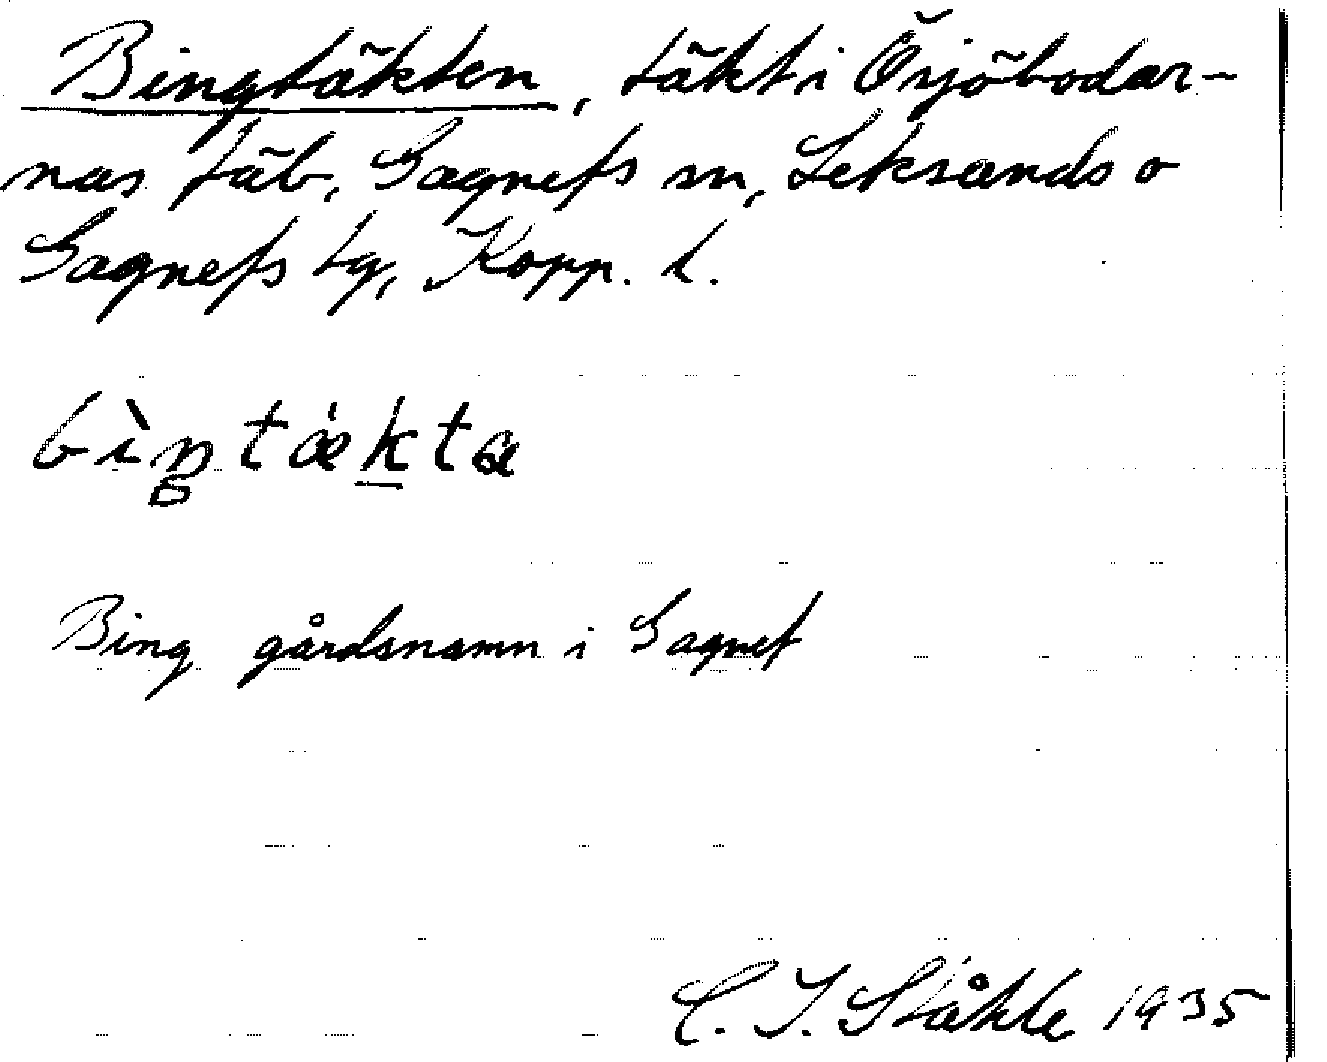 Bingtäkten, täkt i Örjöbodar-
nas fäb, Gagnefs sn, Leksands o
Gagnefs tg, Kopp. l.
bìŋtækta
Bing gårdsnamn i Gagnef
C. I. Ståhle 1935